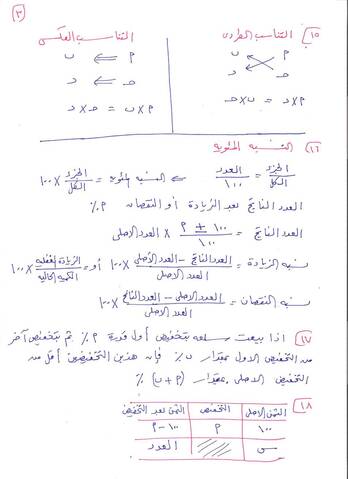 ٣
١٥) التناسب الطردى
التناسب العكسى
م ب
حـ د
م × د = ب × حـ
م ⇐ ب
حـ ⇐ د
م × ب = حـ × د
١٦) النسبه المئويه
الجزء / الكل = العدد / ١٠٠ ⇐ النسبه المئويه = الجزء / الكل × ١٠٠
العدد الناتج بعد الزيادة أو النقصان م %
العدد الناتج = ١٠٠ ± م / ١٠٠ × العدد الاصلى
نسبه الزيادة = العدد الناتج - العدد الأصلى / العدد الاصلى × ١٠٠ أو = الزيادة الفعليه / الكميه الحاليه × ١٠٠
نسبه النقصان = العدد الاصلى - العدد الناتج / العدد الاصلى × ١٠٠
١٧) اذا بيعت سلعه بتخفيض أول قدرة م % ثم بتخفيض آخر
من التخفيض الاول بمقدار ب % فإن هذين التخفيضين أقل من
التخفيض الاصلى بمقدار (م + ب) %
١٨)
الثمن الاصلى التخفيض الثمن بعد التخفيض
١٠٠ م ١٠٠ - م
س العدد